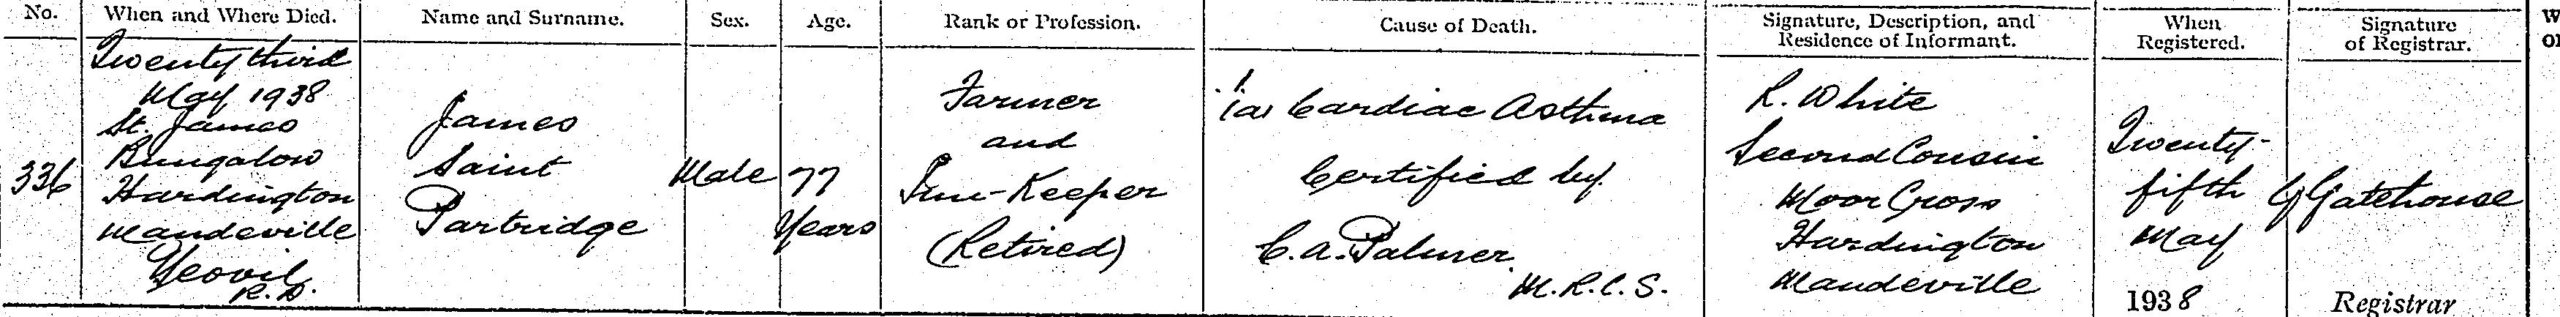 No. When and Where Died. Name and Surname. Sex. Age. Rank or Profession. Cause of Death. Signature, Description, and Residence of Informant. When Registered. Signature of Registrar.
336
Twenty third
May 1938
St. James
Bungalow
Hardington
Mandeville
Yeovil
R.D.
James
Saint
Partridge
Male
77
Years
Farmer
and
Inn-Keeper
(Retired)
1(a) Cardiac Asthma
Certified by
C. A. Palmer
M.R.C.S.
R. White
Second Cousin
Moor Cross
Hardington
Mandeville
Twenty-
fifth
May
1938
Gatehouse
Registrar